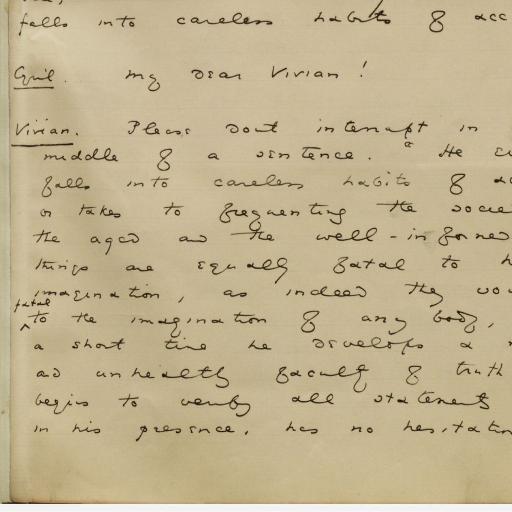 falls into careless habits of acc
Cyril. My dear Vivian!
Vivian. Please dont interrupt in
middle of a sentence. "He
falls into careless habits of
or takes to frequenting the socie
the aged and the well-informed
things are equally fatal to h
imagination, as indeed they wou
fatal
to the imagination of any body,
a short time he develops a
and unhealthy faculty of truth
begins to verify all statements
in his presence, has no hesitation